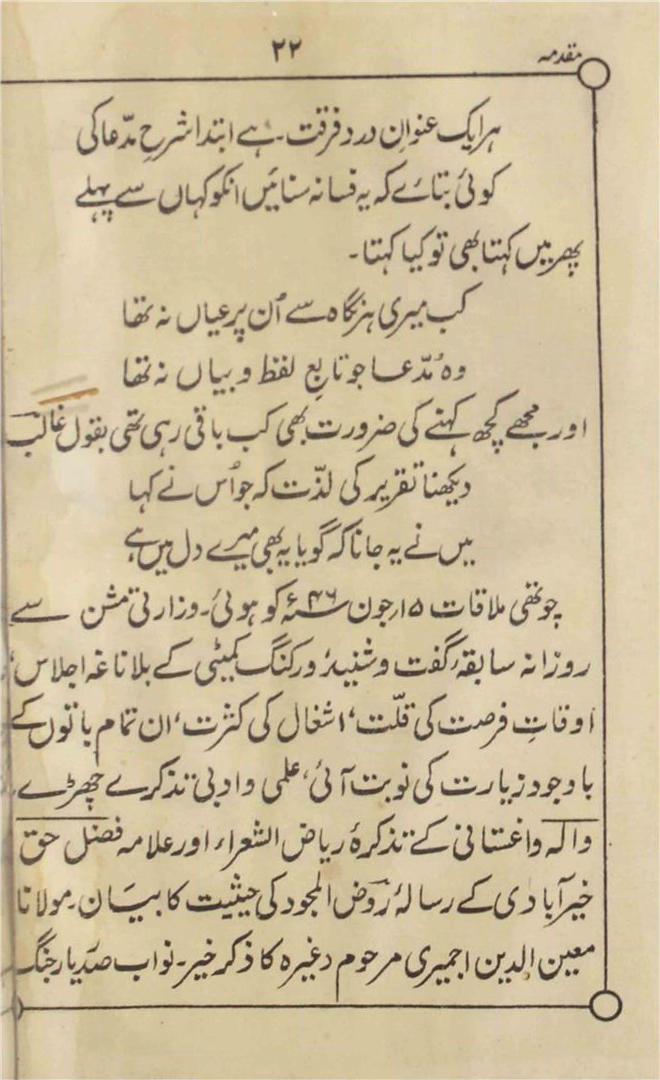 مقدمہ
۲۲
ہر ایک عنوانِ درد فرقت۔ ہے ابتدا شرحِ مدّعا کی
کوئی بتائے کہ یہ فسانہ سنائیں انکو کہاں سے پہلے
پھر میں کہتا بھی تو کیا کہتا۔
کب میری ہر نگاہ سے اُن پر عیاں نہ تھا
وہ مُدّعا جو تابعِ لفظ و بیاں نہ تھا
اور مجھے کچھ کہنے کی ضرورت بھی کب باقی رہی تھی بقول غالب
دیکھنا تقریر کی لذّت کہ جو اُس نے کہا
میں نے یہ جانا کہ گویا یہ بھی میرے دل میں ہے
چوتھی ملاقات ۱۵؍جون ۴۶؁ء کو ہوئی۔ وزارتی مشن سے
روزانہ سابقہ، گفت و شنید، ورکنگ کمیٹی کے بلاناغہ اجلاس،
اوقاتِ فرصت کی قلّت، اشغال کی کثرت، ان تمام باتوں کے
باوجود زیارت کی نوبت آئی، علمی و ادبی تذکرے چھڑے
والہ داغستانی کے تذکرۂ ریاض الشعراء اور علامہ فضل حق
خیرآبادی کے رسالۂ روض المجود کی حیثیت کا بیان۔ مولانا
معین الدین اجمیری مرحوم وغیرہ کا ذکر خیر۔ نواب صدر یار جنگ